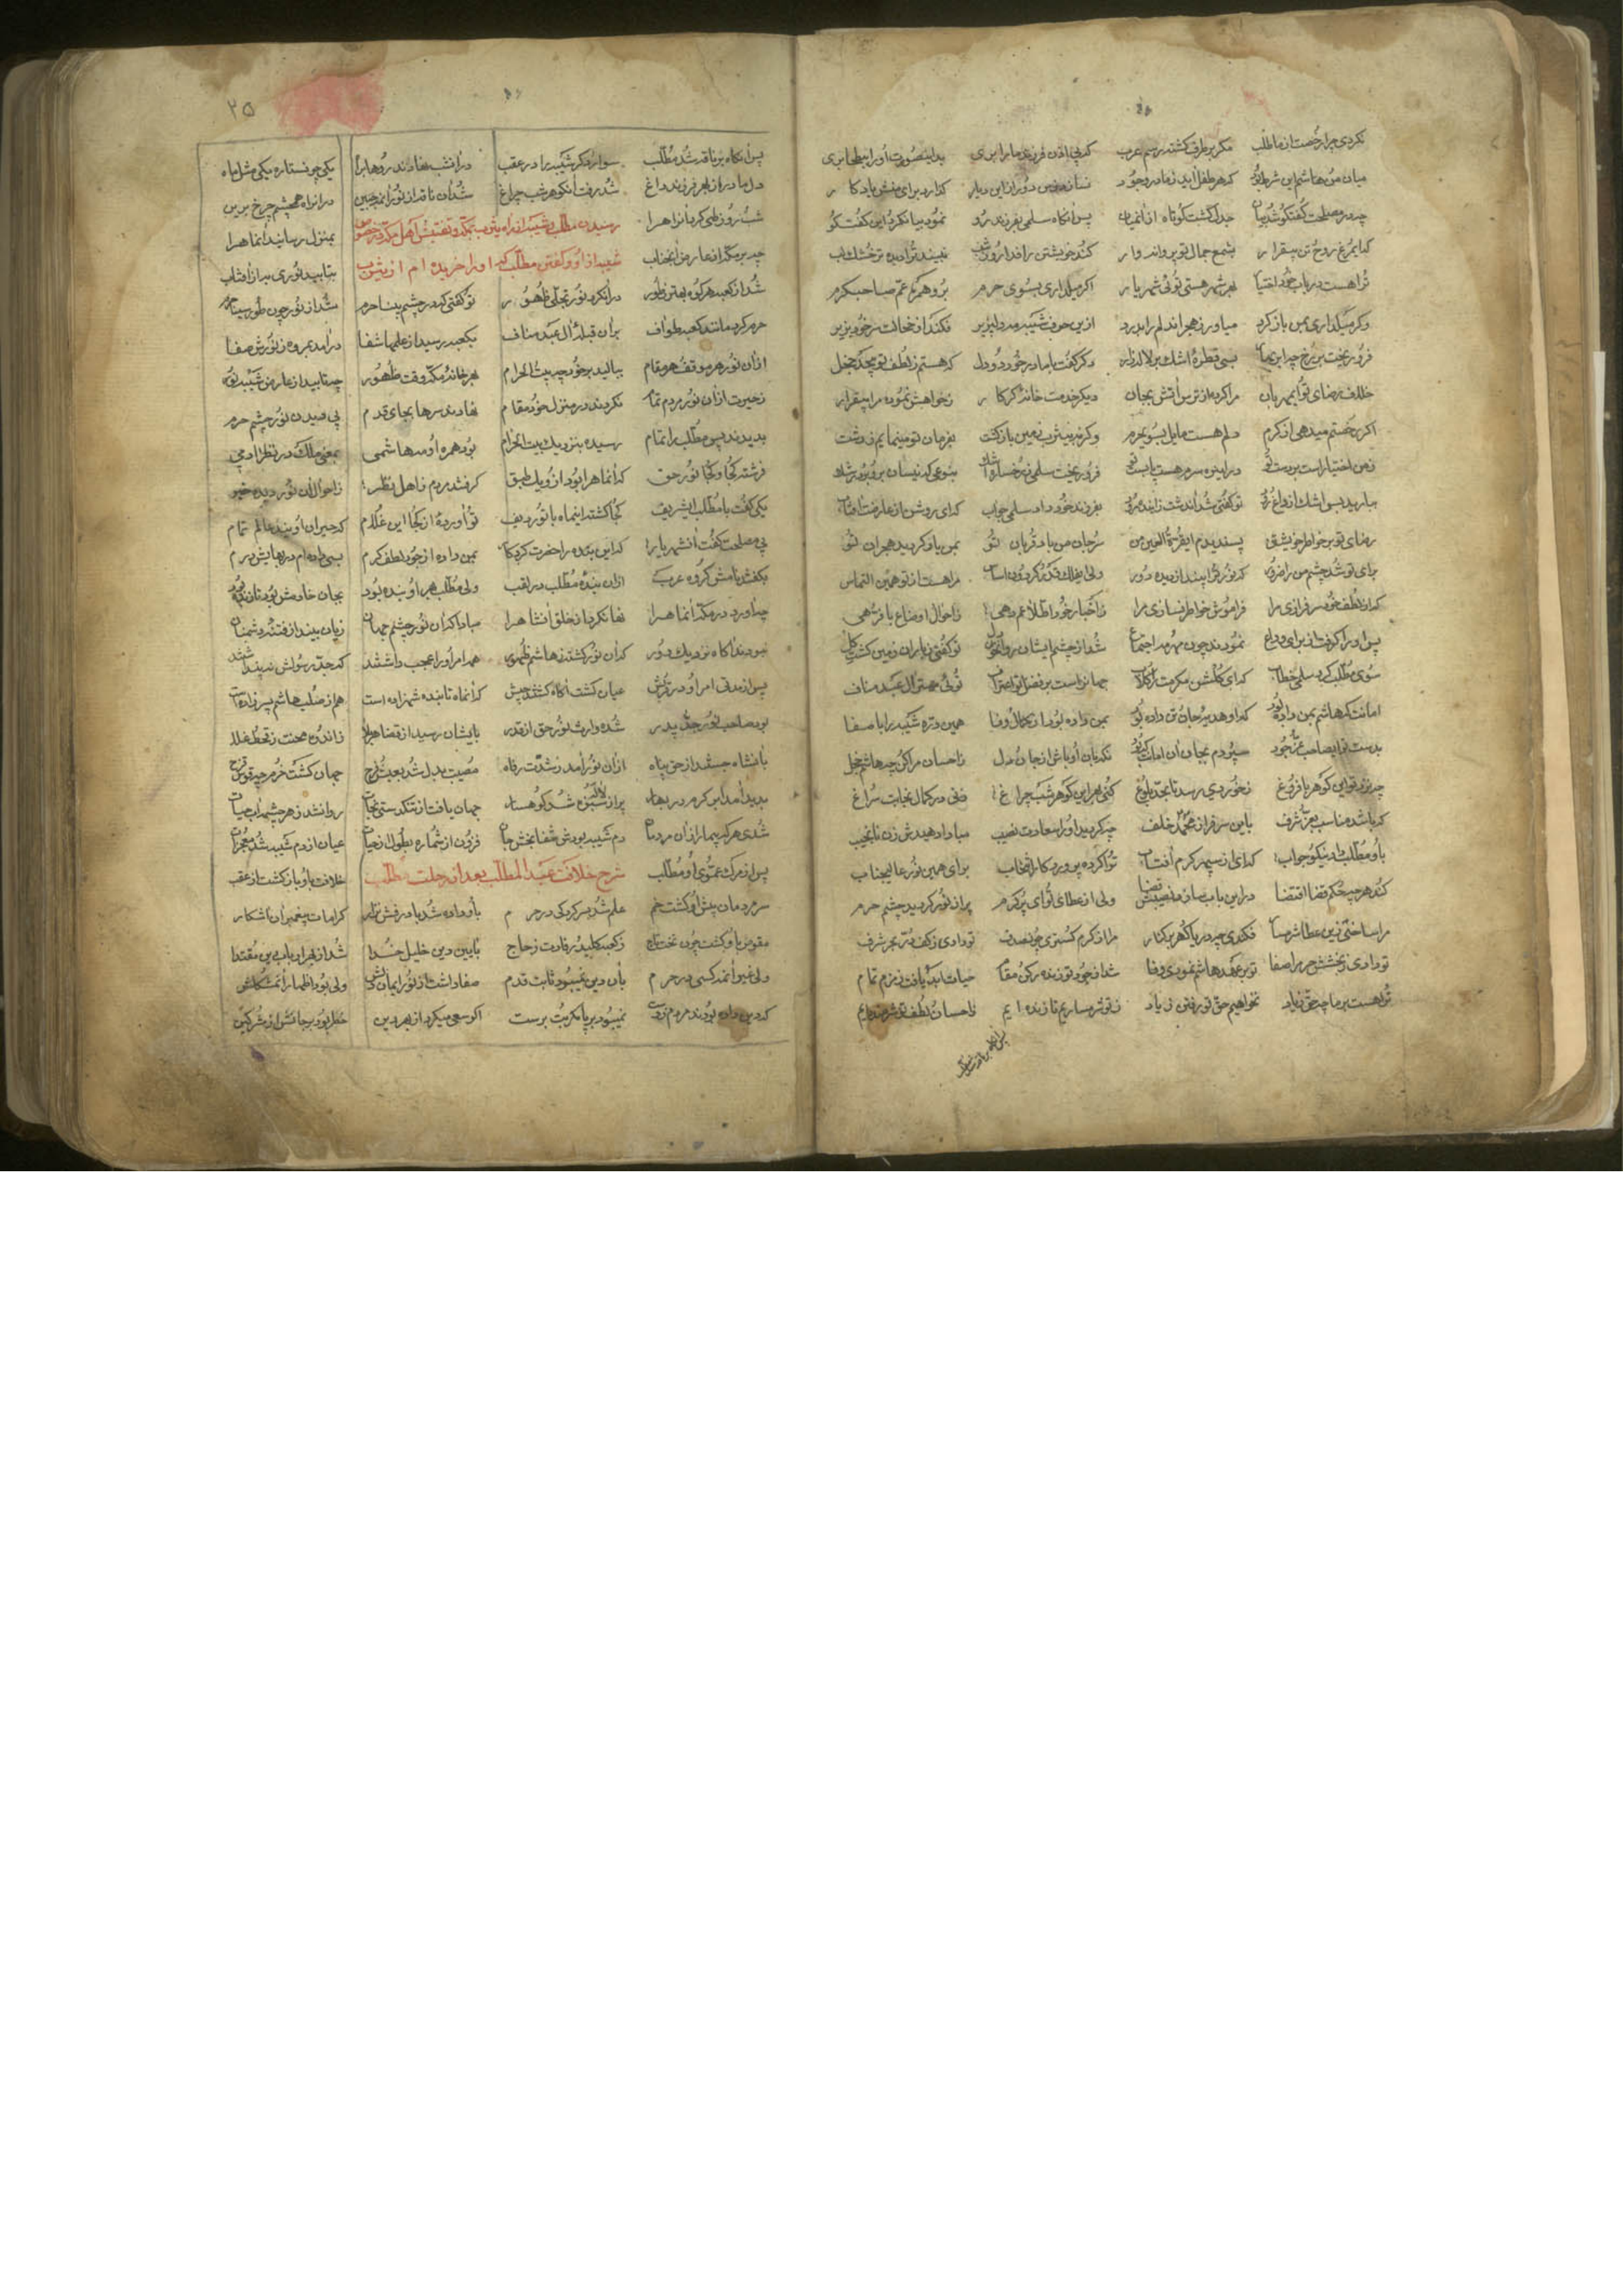 نکردی چرا رخصت از ما طلب مگر برطرف گشته رسم عرب که بی اذن فرزند ما را بری بدینصورت او را ببطحا بری
میان من و هاشم این شرط بود که هر طفل آید ز ما در وجود نسازد کس دور از این دیار گذارد برای منش یادگار
چه در مصلحت گفتگو شد بیان جدل گشت کوتاه از آنمیان پس آنگاه سلمی بفرزند رو نمود و بیان کرد این گفت گو
که ای مرغ روح تن بیقرار بشمع جمال تو پروانه وار کند خویشتن را فدا روز و شب نبیند ترا دیده تر خشک لب
ترا هست در باب خود اختیار بهر شهر هستی توئی شهریار اگر میل داری بسوی حرم برو همره عم صاحب کرم
وگر میل داری بمن باز گرد میاور ز هجر اندلم را بدرد ازین حرف شیبه مه دلپذیر فکند از خجالت سر خود بزیر
فرو ریخت بر رخ چه ابر بهار بسی قطره اشک بر لاله زار دگر گفت با مادر خود دو دل که هستم ز لطف تو بیحد خجل
خلاف رضای تو ای مهربان مرا کرده از ترس آتش بجان دیگر خدمت خانه کردگار ز خواهش نموده مرا بیقرار
اگر رخصتم میدهی از کرم دلم هست مایل بسوی حرم وگرنه بیثرب زمین بازگشت بفرمان تو مینمایم ز دشت
ز من اختیار است بر دست تو در اینره سرم هست پا بست تو فرو ریخت سلمی بر رخساره اشک بنوعی که نیسان برو برد رشک
ببارید بس اشک از داغ رود تو گفتی شد اندشت زاینده رود بفرزند خود داد سلمی جواب که ای روشن از عارضت آفتاب
رضای تو بر خواطر خویشتن پسندیدم ای قرة العین من سر و جان من باد قربان تو بمن یاد گردید هجران تو
برای تو شد چشم من را ضرور که نور ترا بیند از دیده دور مرا هست از تو همین التماس
که از لطف خود سرفرازی مرا فراموش خواطر نسازی مرا ز اخبار خود اطلاعم دهی ز احوال و اوضاع با فرهی
پس او را گرفتند از برای وداع نمودند چون مهر و مه اجتماع شد از چشم ایشان روان تو گفتی ز باران زمین گشت گل
سوی مطلب کرد سلمی خطاب که ای گلشن مکرمت را گلاب جهان راست بر فضل تو اعتراف توئی مهتر آل عبد مناف
امانت که هاشم بمن داده بود که او هدیه جان تن داده بود بمن داده بود از کمال وفا همین دره شیبه را با صفا
بدست تو ای صاحب عز و جود سپردم بجان آن امانت نگهبان او باش از جان و دل ز احسان مرا کن چه هاشم خجل
چه نزد تو این گوهر با فروغ ز خوردی رسد تا بحد بلوغ کنی بهر این گوهر شب چراغ زنی در کمال نجابت سراغ
که باشد مناسب بعز و شرف باین سرفراز محمد خلف چه گردید او را سعادت نصیب مبادا دهیدش زن نانجیب
باو مطلب داد نیکو جواب که ای از سپهر کرم آفتاب ترا کرده پروردگار انتخاب برای همین نور عالیجناب
کند هر چه حکم قضا اقتضا در این باب سازد نصیبش قضا ولی از عطای تو ای پر کرم پر از نور گردید چشم حرم
مرا ساختی زین عطا شرمسار فکندی چه دریا گهر بر کنار مرا از کرم گستری چون صدف تو دادی ز کف در بحر شرف
تو دادی ز بخشش حرم را صفا تو بر عهد هاشم نمودی وفا شد از جود تو زنده رکن و مقام حیات ابد یافت زمزم تمام
ترا هست بر ما چه حق زیاد نخواهیم حق تو رفتن ز یاد ز تو شرمساریم تا زنده ایم ز احسان و لطف تو شرمنده ایم
۲۵
پس آنگاه بر ناقه شد مطلب سوار و دگر شیبه را در عقب در آنشب نهادند رو ها براه یکی چو ستاره یکی مثل ماه
دل مادر از بهر فرزند داغ شد و رفت آن گوهر شب چراغ شد آن ناقه از نور آنمه جبین در آنراه همچشم چرخ برین
شب و روز طی کرد آنراه را بمنزل رسانید آنماه را
رسیدن مطلب و شیبه از راه یثرب بمکه و تفتیش اهل مکه در خصوص
شیبه از او و گفتن مطلب که او را خریده ام از یثرب
چه بر مکه از عارض آنجناب بتابید نوری به از آفتاب
شد از کعبه هر کوه بهتر ز طور در آن کرد نور تجلی ظهور تو گفتی که در چشم بینا حرم شد از نور چون طور سینا حرم
حرم کرد مانند کعبه طواف بر آن قبله آل عبد مناف بکعبه رسید از علمها شفا در آمد بمروه ز نورش صفا
از آن نور هر موقف و هر مقام ببالید بر خود چه بیت الحرام بهر خانه مکه وقت ظهور چه تابید از عارض شیبه نور
ز حیرت از آن نور مردم تمام نکردند در منزل خود مقام نهادند سرها بجای قدم پی دیدن نور چشم حرم
بدیدند پس مطلب را تمام رسیده بنزدیک بیت الحرام بود همره او مه هاشمی بمعنی ملک در نظر آدمی
فرشته کجا و کجا نور حق که آنماه را بود از و یک طبق گرفتند مردم ز اهل نظر ز احوال آن نور دیده خبر
یکی گفت با مطلب ای شریف کجا گشته اینماه با تو ردیف تو آورده از کجا این غلام که حیران او یند عالم تمام
پی مصلحت گفت آنشهریار که این بنده را حضرت کردگار بمن داده از جود و لطف و کرم بسی داده ام در بهایش درم
بگفتند نامش گروه عرب از آن بنده مطلب در لقب ولی مطلب بهر او بنده بود بجان خادمش بود تا زنده بود
چه آورد در مکه آنماه را نهان کرد از خلق آنشاه را مبادا که آن نور چشم جهان زیان بیند از فتنه دشمنان
نبودند آگاه نزدیک و دور که آن نور گشته ز هاشم ظهور همه امر او را عجب داشتند که جد رسولش نه پنداشتند
پس از مدتی امر او در قریش عیان گشت آگاه گشتند جیش که آنماه تابنده شهزاده است هم از صلب هاشم پسر زاده است
بود صاحب نور جد و پدر شده وارث نور حق از قدر بایشان رسید از قضا هر بلا ز اندوه و محنت ز قحط و غلا
بآنشاه جستند از حق پناه از آن نور آمد ز شدت رفاه مصیبت بدل شد بعیش و فرح جهان گشت خرم چه قوس قزح
پدید آمد ابر کرم در بهار پر از لاله و سبزه شد کوهسار جهان یافت از تنگدستی نجات روانشد ز هر چشمه آب حیات
شدی هر که بیمار از آن مردمان دم شیبه بودش شفا بخش جان فزون از شماره بطول زمان عیان از دم شیبه شد معجزات
پس از مرگ عموی او مطلب خلافت باو بازگشت از عقب
شرح خلافت عبد المطلب بعد از رحلت مطلب
سر مردمان پیش او گشت خم علم شد بسر کردگی در حرم باو داده شد یادرفش نزار کرامات پیغمبران آشکار
مفوض باو گشت چون تخت و تاج ز کعبه کلید و رفادت ز حاج بآیین دین خلیل خدا شد از بهر ارباب دین مقتدا
ولی غیر آنمه کسی در حرم بآن دین نمیبود ثابت قدم صفا داشت از نور ایمان دلش ولی بود اظهار آن مشکلش
که در دین آن بودند مردم نمیبود بر پا مگر بت پرست اگو سعی میکرد از بهر دین خطر بود بر جانش از مشرکین